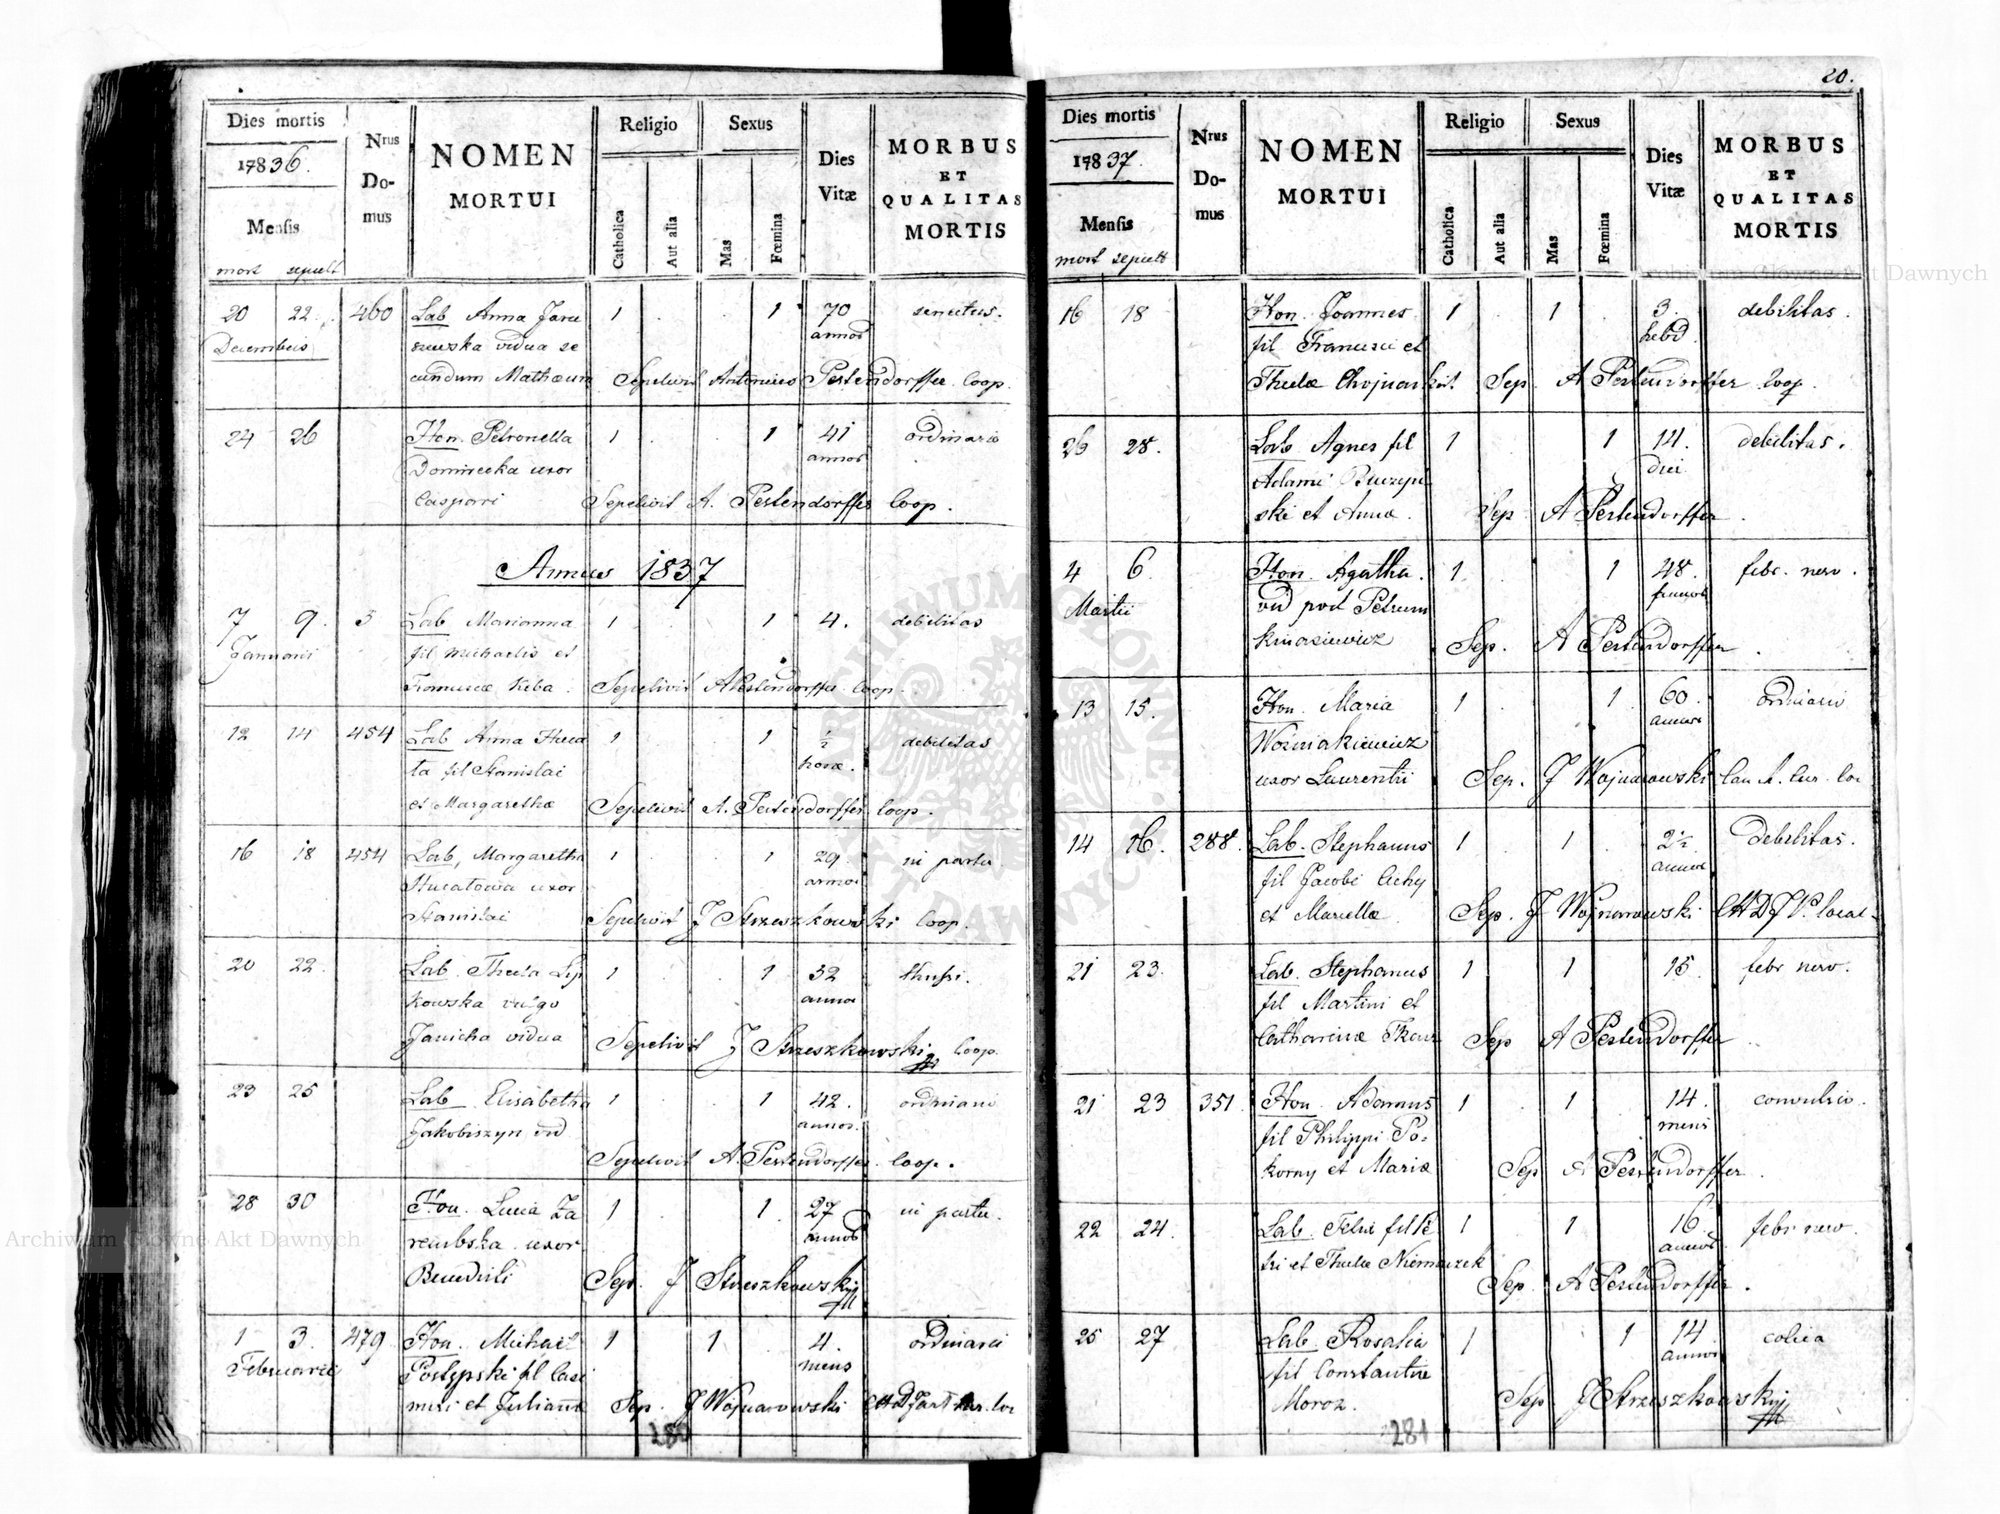 Dies mortis
17836.
Mensis
mort sepult
Nrus
Do-
mus
NOMEN
MORTUI
Religio
Catholica
Aut alia
Sexus
Mas
Fœmina
Dies
Vitæ
MORBUS
ET
QUALITAS
MORTIS
20 22. 460 Lab Anna Jaru 1 1 70 senectus.
Decembris szewska vidua se annor
cundum Mathæum Sepelivit Antonius Pestendorffer Coop.
24 26 Hon. Petronella 1 1 41 ordinario
Dominecka uxor annor
Caspari Sepelivit A. Pestendorffer Coop.
Annus 1837
7 9. 3 Lab Marianna 1 1 4. debilitas
Januarii fil Michaelis et
Franciscæ Keba. Sepelivit A Pestendorffer Coop.
12 14 454 Lab Anna 1 1 ½ debilitas
ta fil Stanislai horæ.
et Margarethæ Sepelivit A. Pestendorffer Coop.
16 18 454 Lab, Margaretha 1 1 29 in partu
uxor annor
Stanislai Sepelivit J Strzeszkowski Coop.
20 22. Lab. Thecla Lip 1 1 32 thysi.
kowska vulgo annor
Janicha vidua Sepelivit J Strzeszkowski Coop.
23 25 Lab Elisabetha 1 1 42. ordinari
Jakobiszyn vid annor.
Sepelivit A. Pestendorffer Coop.
28 30 Hon. Lucia Za 1 1 27 in partu.
rembska uxor annor
Benedicti Sep. J Strzeszkowski
1 3. 479 Hon. Michael 1 1 4. ordinarii
Februarii Postępski fil Casi mens
miri et Julianæ Sep. J Wojnarowski
280
20.
Dies mortis
17837.
Mensis
mort sepult
Nrus
Do-
mus
NOMEN
MORTUI
Religio
Catholica
Aut alia
Sexus
Mas
Fœmina
Dies
Vitæ
MORBUS
ET
QUALITAS
MORTIS
16 18 Hon. Joannes 1 1 3. debilitas.
fil Francisci et hebd
Theclæ Sep. A Pestendorffer Coop
26 28. Lab Agnes fil 1 1 14. debilitas.
Adami Buczyń diei
ski et Annæ. Sep A Pestendorffer.
4 6. Hon. Agatha. 1 1 48. febr. nerv.
Martii vid post Petrum annor
Kmosiewicz Sep. A Pestendorffer.
13 15. Hon. Maria 1 1 60. ordinarii
Wozniakiewicz annor
uxor Laurentii Sep. J Wojnarowski Can A. Cur. Loc
14 16. 288. Lab. Stephanus 1 1 2½ debilitas.
fil Jacobi Cichy annor
et Mariellæ Sep. J Wojnarowski
21 23. Lab. Stephanus 1 1 15. febr nerv.
fil Martini et
Catharinæ Sep A Pestendorffer
21 23 351. Hon. Adamus 1 1 14. convulsio.
fil Philippi Po- mens
korny et Mariæ Sep A Pestendorffer.
22 24. Lab. Felix fil Pe 1 1 16. febr nerv.
tri et Theclæ Niemczek annor
Sep. A Pestendorffer.
25 27 Lab. Rosalia 1 1 14 colica
fil Constantini annor
Moroz. Sep J Strzeszkowski
281
Archiwum Główne Akt Dawnych
Archiwum Główne Akt Dawnych
ARCHIWUM GŁÓWNE AKT DAWNYCH